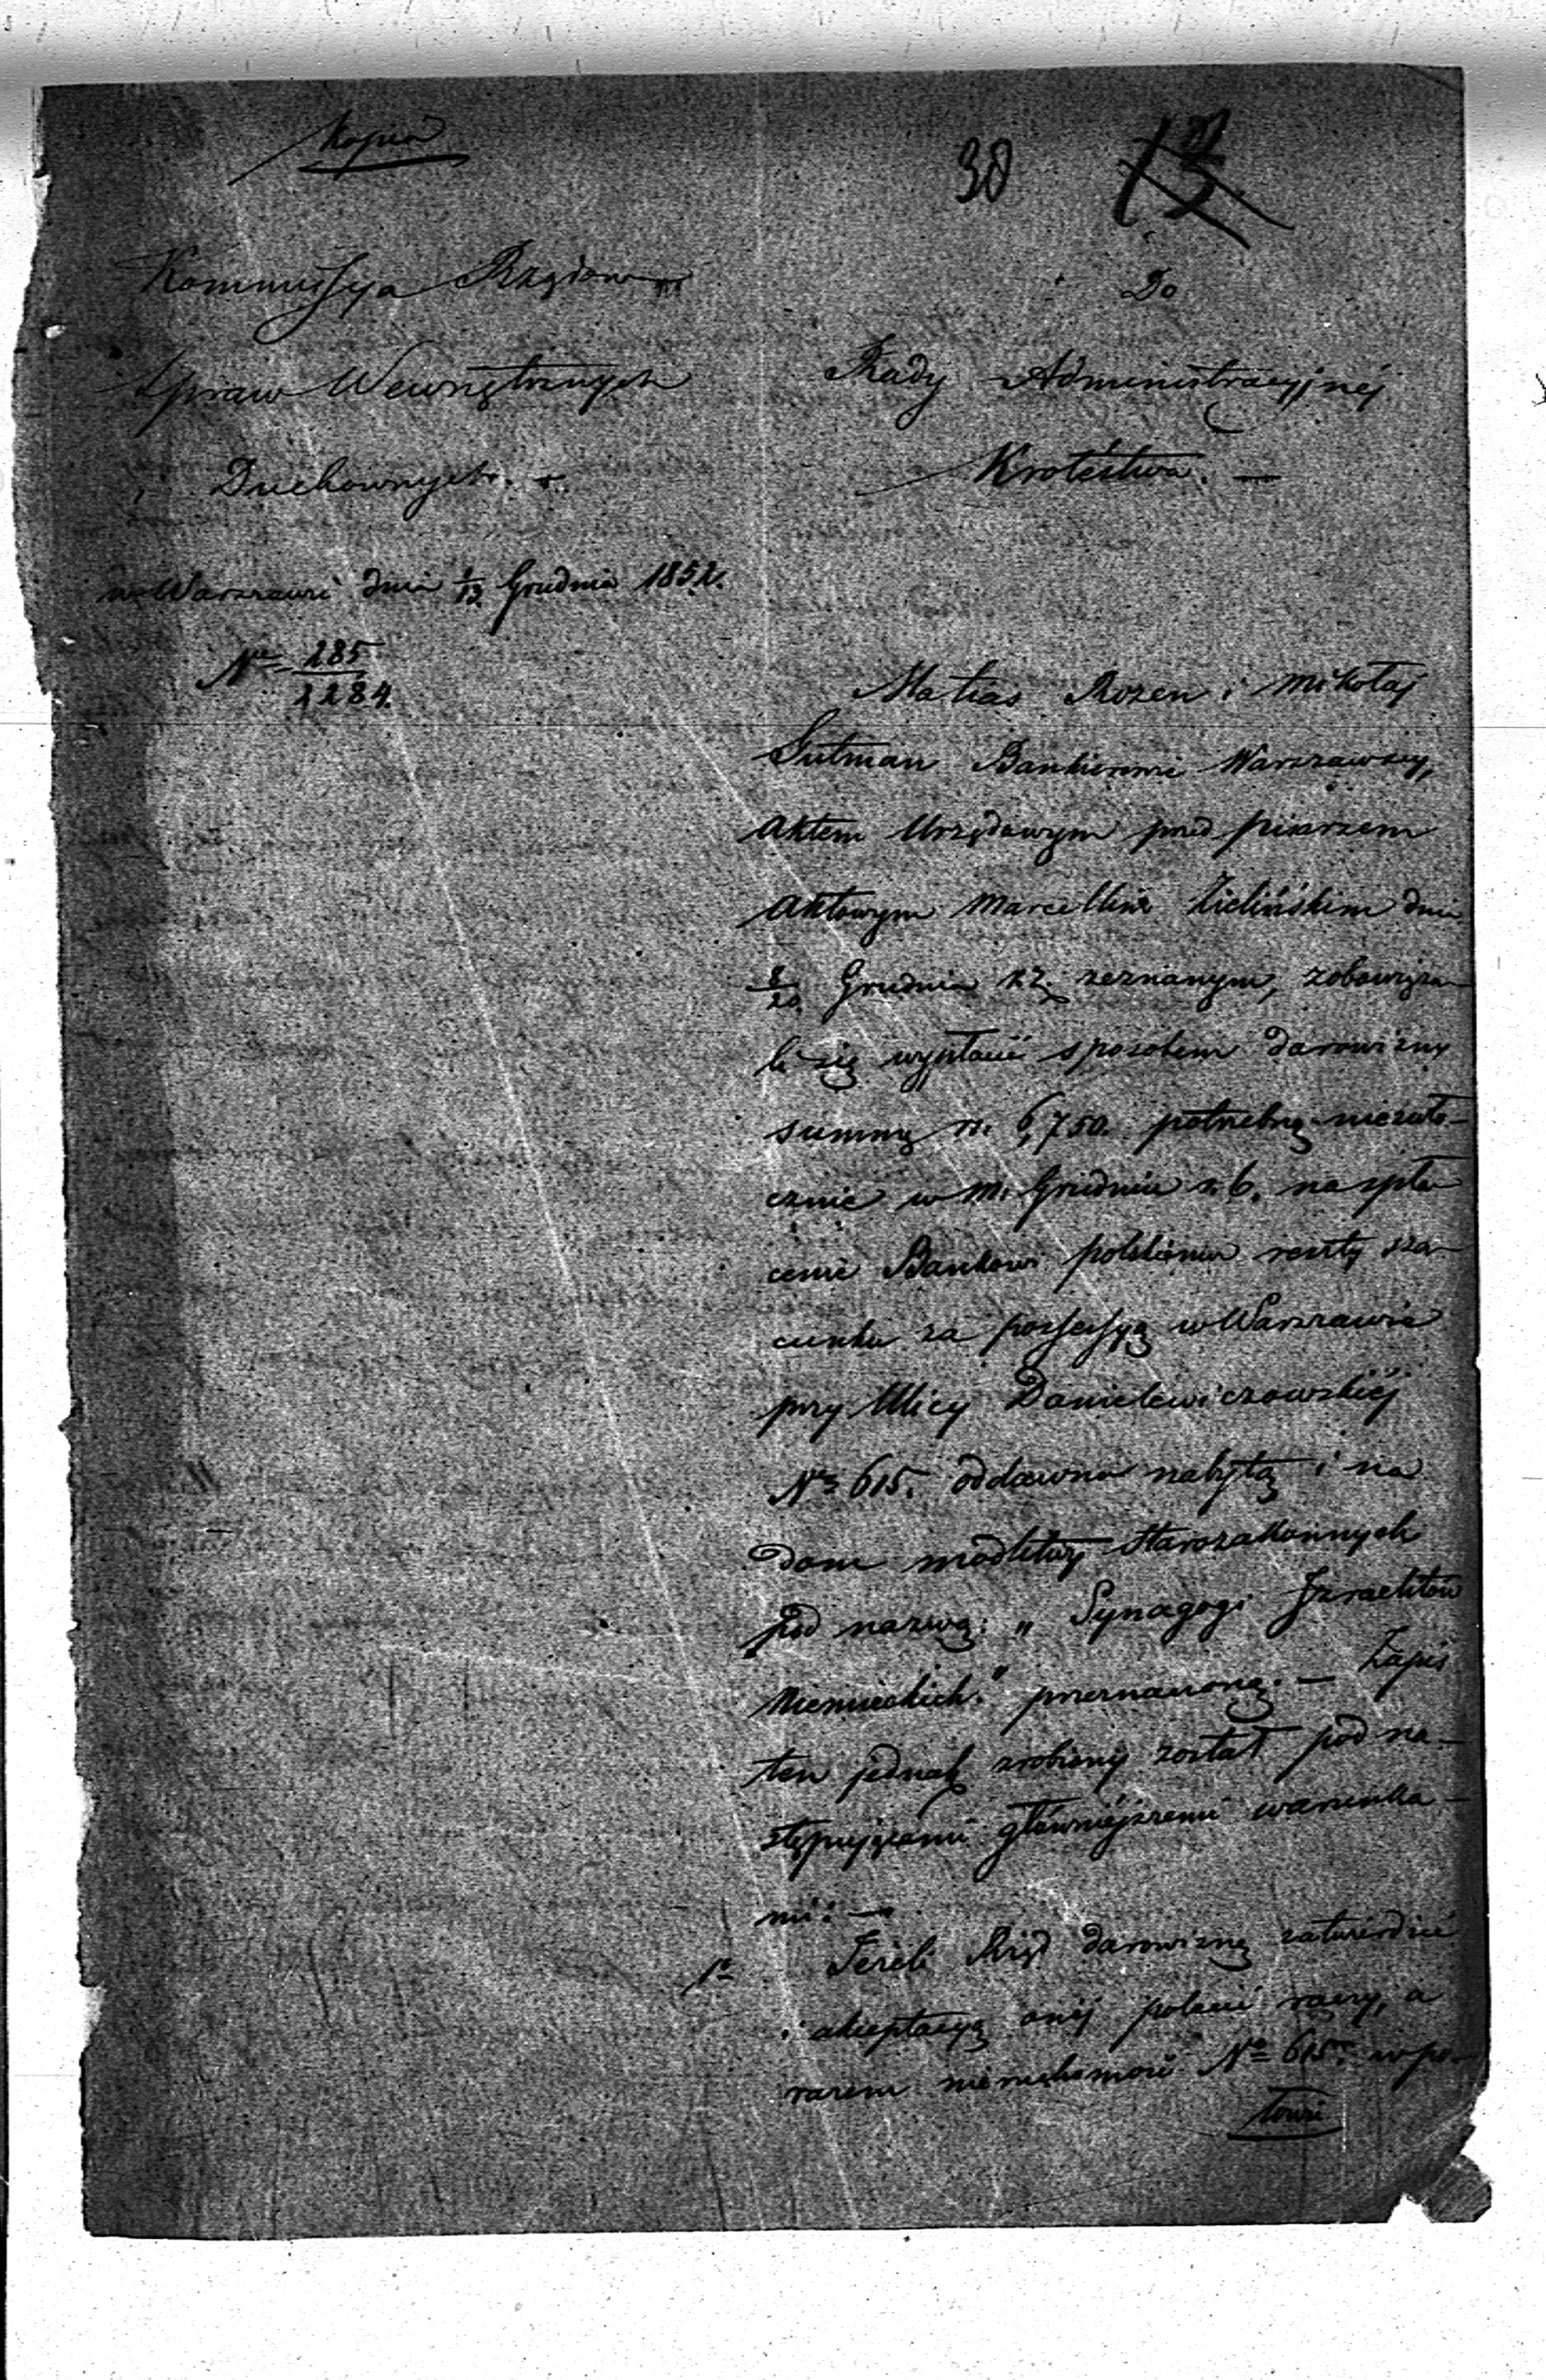 Kopia
30
Kommissya Rządowa
Spraw Wewnętrznych
i Duchownych.
w Warszawie dnia Grudnia 1852.
No 285
1284.
Do
Rady Administracyjnéj
Królestwa. —
Matias Rozen i Mikołaj
Gutman Bankierowie Warszawscy,
Aktem Urzędowym przed pisarzem
Aktowym Marcellim Zielińskim dnia
8/20 Grudnia zeznanym, zobowiąza-
li się wypłacić sposobem darowizny
summę rs. 6,750. potrzebną niezwło-
cznie w m. Grudniu r. b. na spła-
cenie Bankowi polskiemu reszty sza-
cunku za possessyą w Warszawie
przy Ulicy Danielewiczowskiéj
No 615. oddawna nabytą i na
dom modlitwy Starozakonnych
pod nazwą: „Synagogi Izraelitów
Niemieckich." przeznaczoną. — Zapis
ten jednak zrobiony został pod na-
stępującemi główniejszemi warunka-
mi: —
1o Jeżeli Rząd darowiznę zatwierdzić
i akceptacyą onéj polecić raczy, a
zarazem nieruchomość No 615. w po-
łowie